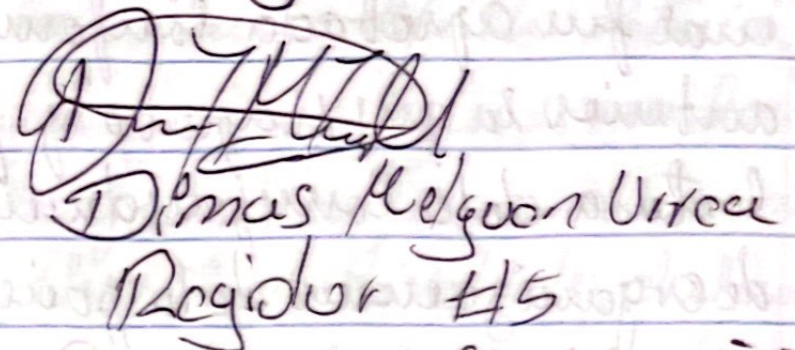 Dimas Melguan Urrea
Regidor #5